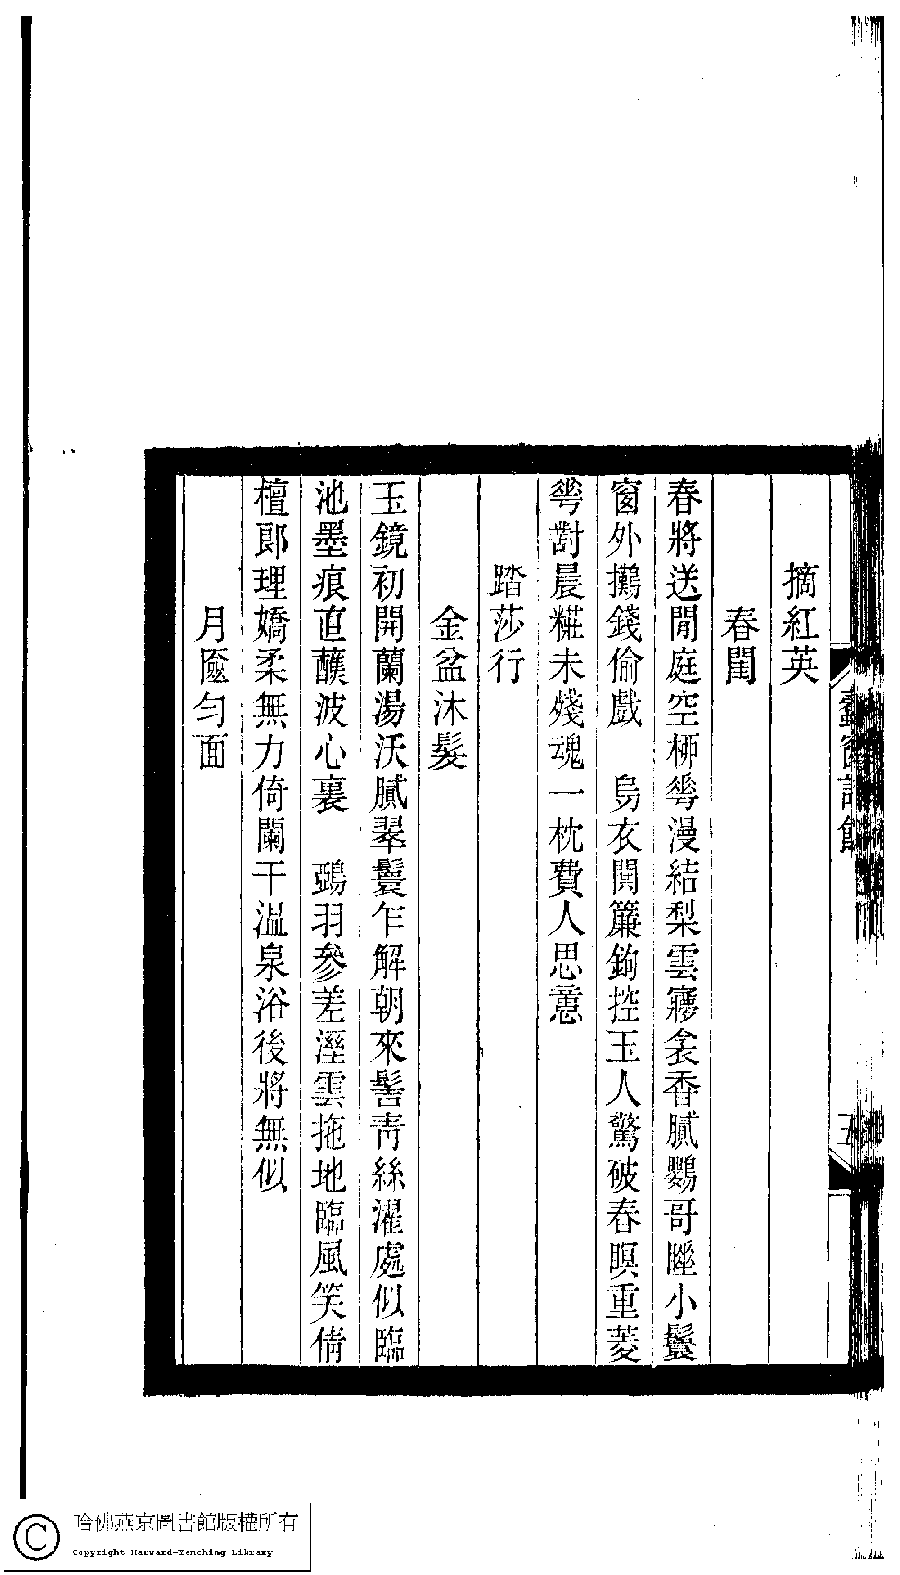 摘紅英
春閨
春將送閒庭空栁夢漫結梨雲寢衾香膩鸚哥睡小鬟
窗外攤錢偷戲　烏衣閧簾鉤控玉人驚破春瞑重菱
夢對晨糚未殘魂一枕費人思意
踏莎行
金盆沐髮
玉鏡初開蘭湯沃膩翠鬟乍解朝來髻靑絲濯處似臨
池墨痕直蘸波心裏　鵶羽參差溼雲拖地臨風笑倩
檀郎理嬌柔無力倚闌干溫泉浴後將無似
月匳勻面
蠧窗詩餘
五
哈佛燕京圖書館版權所有
Copyright Harvard-Yenching Library